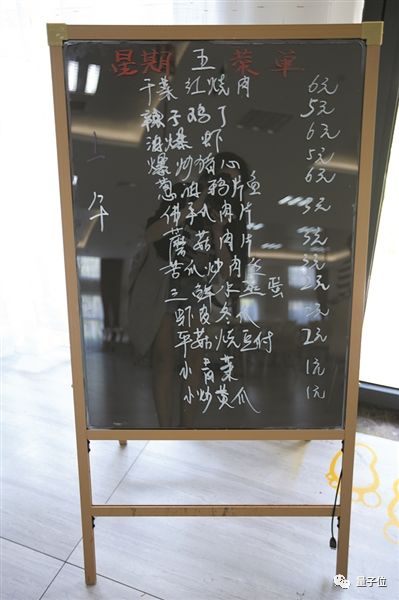 星期五菜单
上午
干菜红烧肉 6元
辣子鸡丁 5元
油爆虾 6元
爆炒猪心 5元
葱油鸦片鱼 6元
佛手瓜肉片 3元
蘑菇肉片 3元
苦瓜炒肉片 3元
三鲜水蒸蛋 2元
虾皮冬瓜 2元
平菇烧豆付 2元
小青菜 1元
小炒黄瓜 1元
量子位